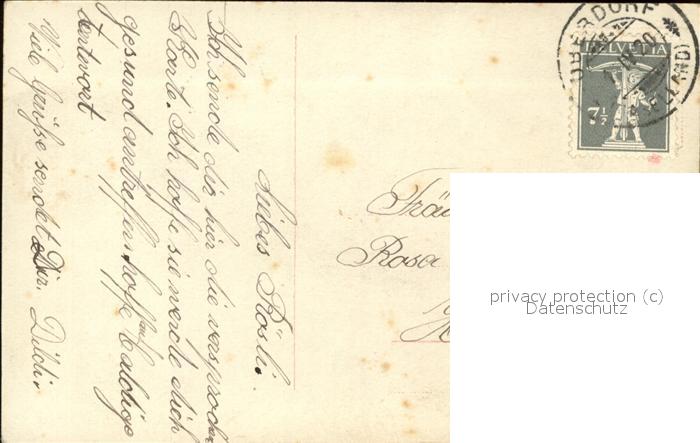 Liebes Rösli.
Ich sende dir hier die versproche
Karte. Ich hoffe sie werde dich
gesund antreffen, hoffe auf baldige
Antwort
Viele Grüße sendet Dir.
Fräu
Rosa
HELVETIA
7½
OBERDORF
privacy protection (c)
Datenschutz